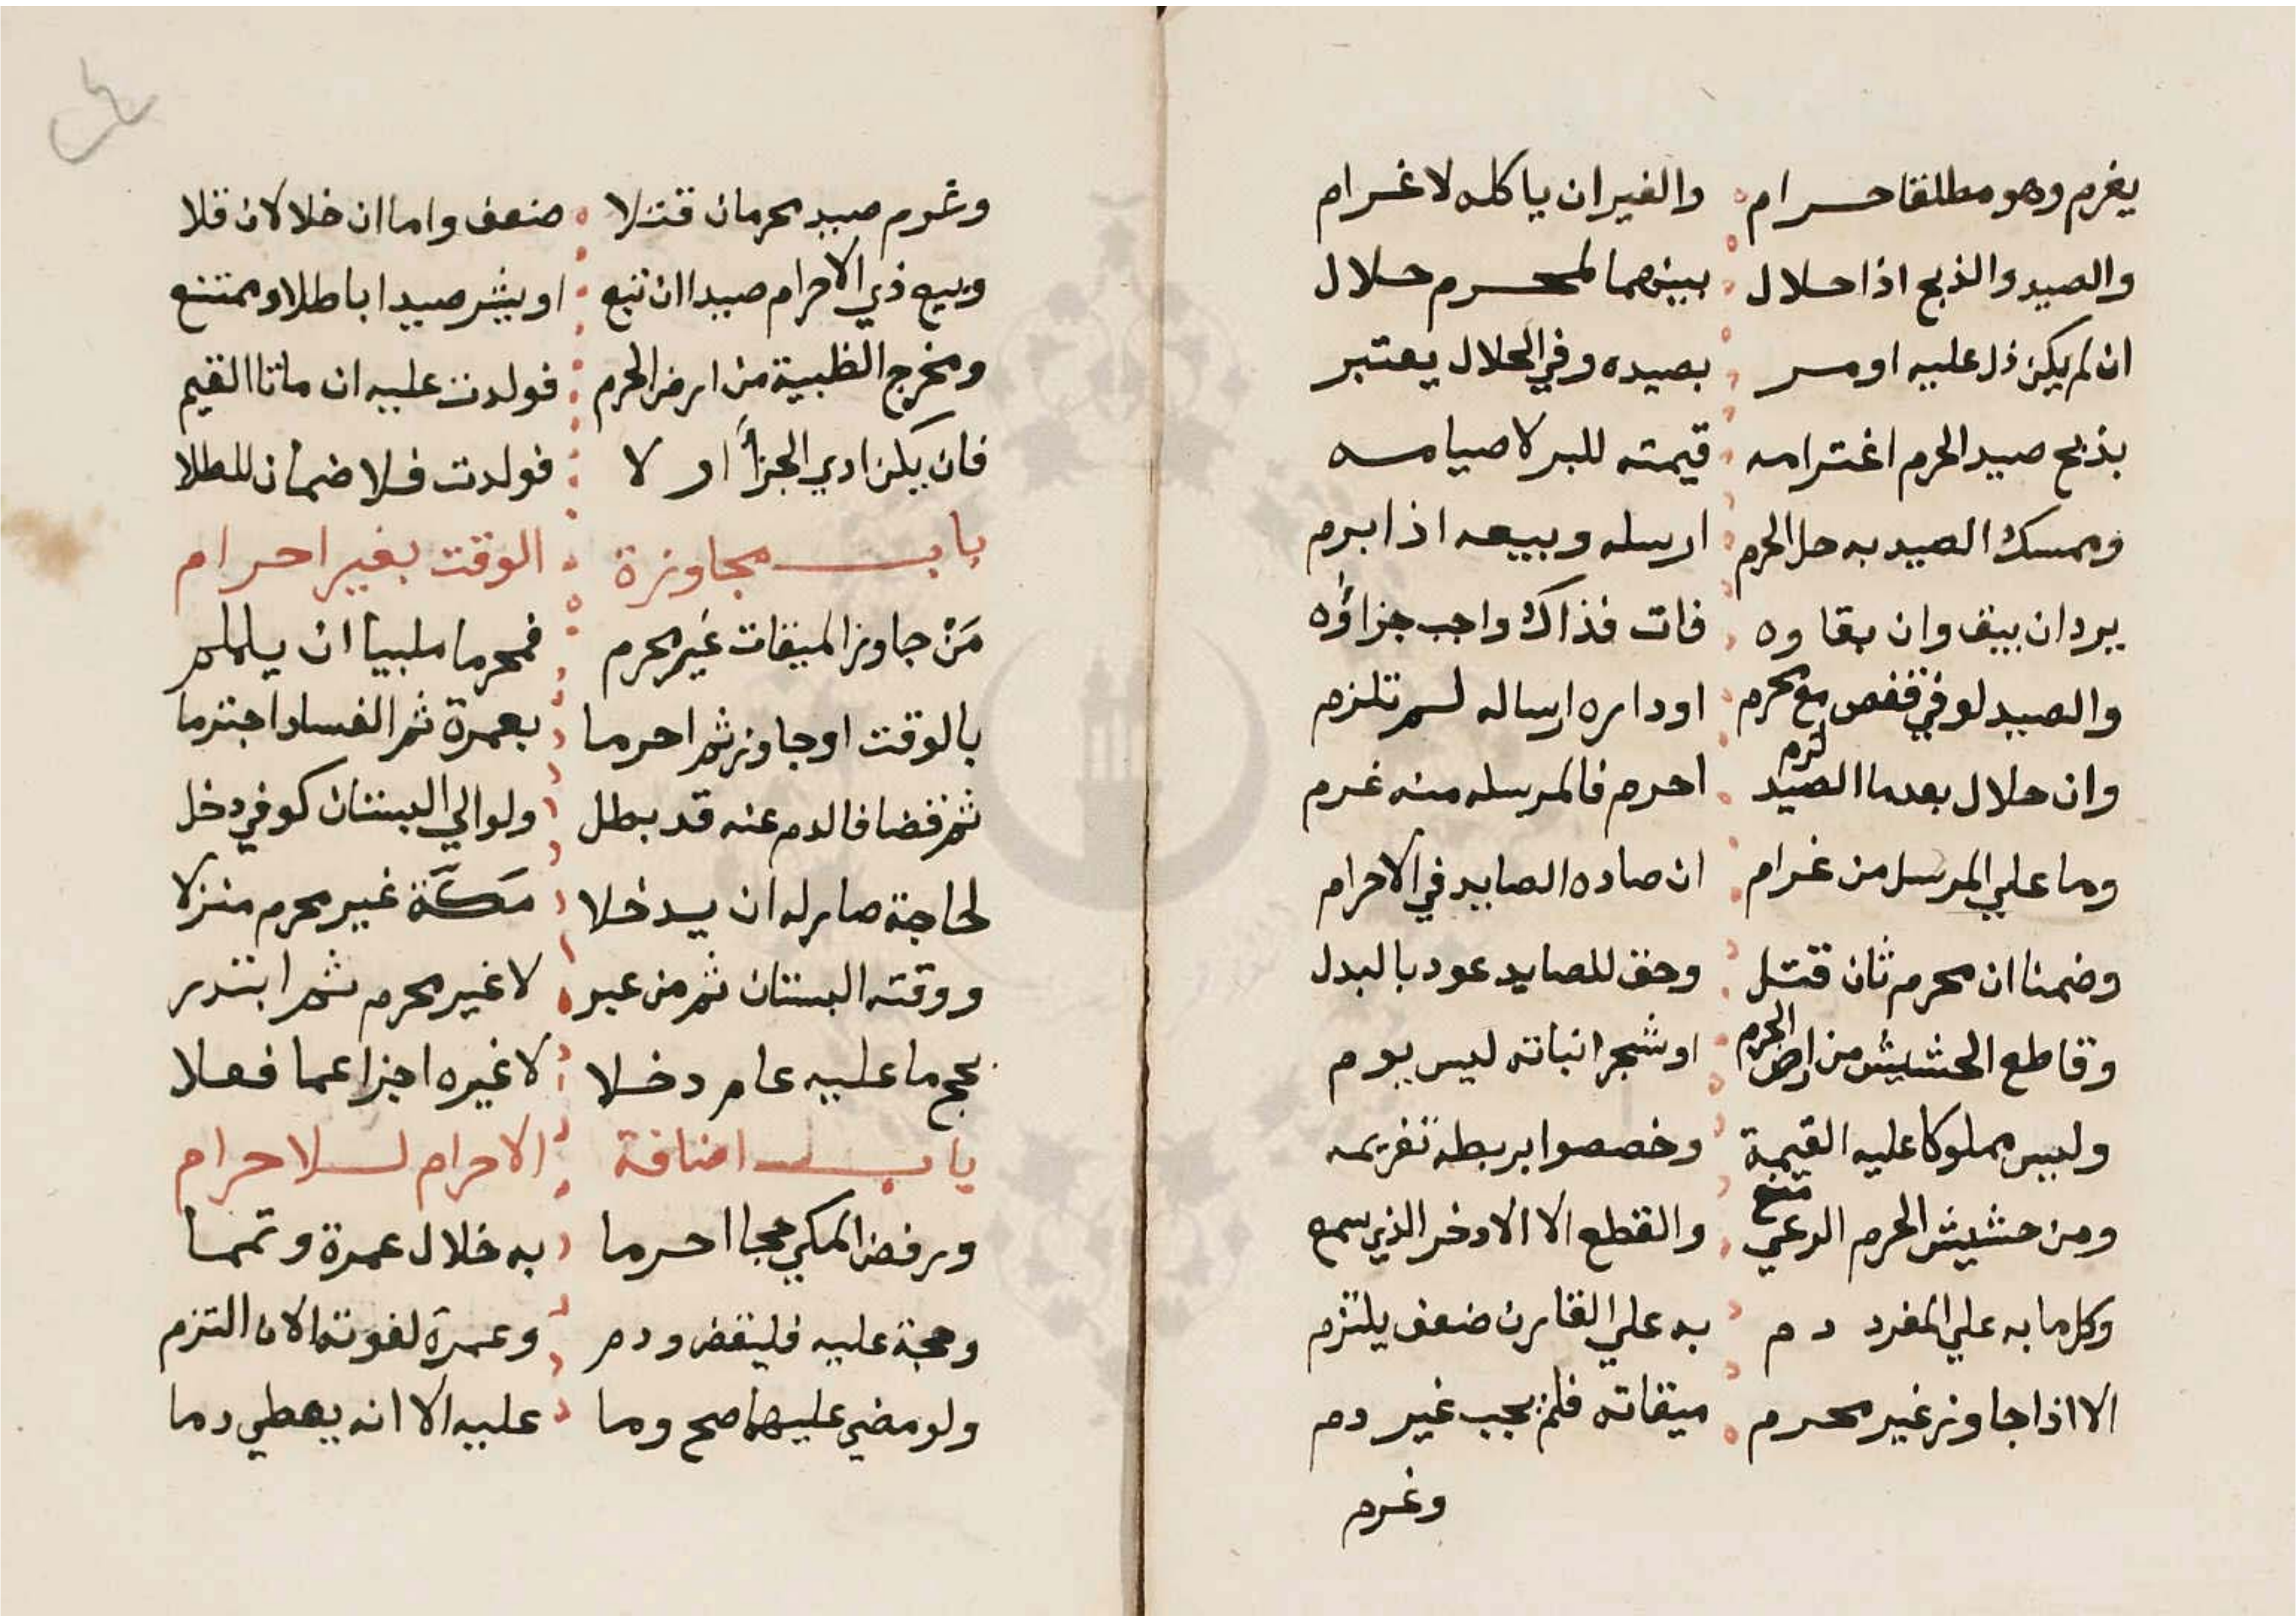 يغرم وهو مطلقا حرام والغير ان ياكله لا غرام
والصيد والذبح اذا حلال بينهما لمحرم حلال
ان لم يكن دل عليه او مر بصيده وفي الحلال يعتبر
بذبح صيد الحرم اغترامه قيمته للبر لا صيامه
وممسك الصيد به حل الحرم ارسله وبيعه اذا ابرم
يرد ان يبق وان بقاوه فات فذاك واجب جزاؤه
والصيد لو في قفص مع محرم او داره ارساله لم تلزم
وان حلال بعدما الصيد لزم احرم فالمرسله منه غرم
وما علي المرسل من غرام ان صاده الصايد في الاحرام
وضمنا ان محرم ثان قتل وحق للصايد عود بالبدل
وقاطع الحشيش من ارض الحرم او شجر انباته ليس يوم
وليس مملوكا عليه القيمة وخصصوا بربطه تغريمه
ومن حشيش الحرم الرعي منع والقطع الا الادخر الذي سمع
وكل ما به علي المفرد دم به علي القارن ضعف يلتزم
الا اذا جاوز غير محرم ميقاته فلم يجب غير دم
وغرم
وغرم صيد محرمان قتلا ضعف واما ان خلا لان فلا
وبيع ذي الاحرام صيدا ان تبع او يشر صيدا باطلا وممتنع
ومخرج الظبية من ارض الحرم فولدت عليه ان ماتا القيم
فان يكن ادي الجزأ او لا فولدت فلا ضمان للطلا
باب مجاوزة الوقت بغير احرام
مَنْ جاوز الميقات غير محرم فمحرما ملبيا ان يلملم
بالوقت او جاوز ثم احرما بعمرة ثم الفساد اجترما
ثم قضا فالدم عنه قد بطل ولو الي البستان كوفي دخل
لحاجة صار له ان يدخلا مكة غير محرم منزلا
ووقته البستان ثم من عبر لا غير محرم ثم ابتدر
بحج ما عليه عام دخلا لا غيره اجزا عما فعلا
باب اضافة الاحرام للاحرام
ورفض المكي حجا احرما به خلال عمرة وتمما
وحجة عليه فليقض ودم وعمرة لفوته الان التزم
ولو مضي عليهما صح وما عليه الا انه يعطي دما